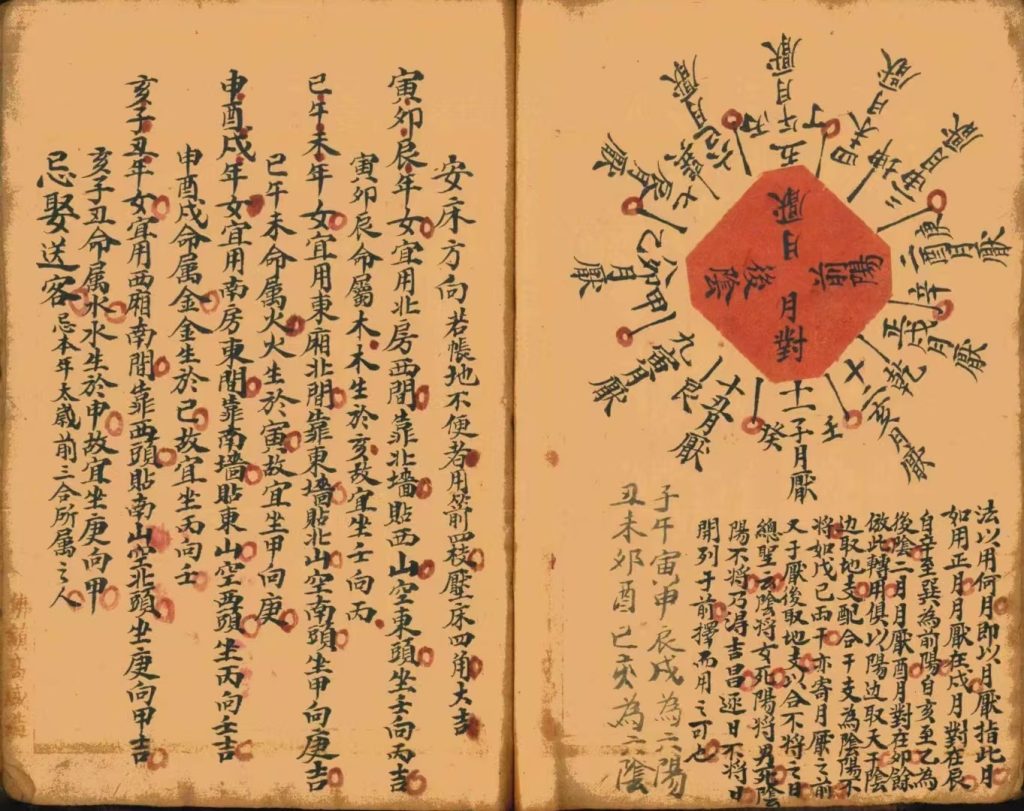 前陽
月厭
後陰
月對
五午月厭
丙
丁
四未月厭
坤
三申月厭
庚
二酉月厭
辛
正戌月厭
乾
十二亥月厭
壬
十一子月厭
癸
十丑月厭
艮
九寅月厭
甲
八卯月厭
乙
七辰月厭
巽
六巳月厭
法以用何月即以月厭指此月
如用正月月厭在戌月對在辰
自辛至巽為前陽自亥至乙為
後陰二月月厭酉月對在卯餘
倣此轉用俱以陽边取天干陰
边取地支配合干支為陰陽不
將如戊己両干亦寄月厭之前
又于厭後取地支以合不將之日
總聖云陰將女死陽將男死陰
陽不將乃得吉昌逐日不將日
開列于前擇而用之可也
子午寅申辰戌為六陽
丑未卯酉巳亥為六陰
安床方向若帳地不便者用箭四枝壓床四角大吉
寅卯辰年女宜用北房西間靠北墻貼西山空東頭坐壬向丙吉
寅卯辰命屬木木生於亥故宜坐壬向丙
巳午未年女宜用東廂北間靠東墻貼北山空南頭坐甲向庚吉
巳午未命属火火生於寅故宜坐甲向庚
申酉戌年女宜用南房東間靠南墻貼東山空西頭坐丙向壬吉
申酉戌命属金金生於巳故宜坐丙向壬
亥子丑年女宜用西廂南間靠西頭貼南山空北頭坐庚向甲吉
亥子丑命属水水生於申故宜坐庚向甲
忌娶送客忌本年太歲前三合所属之人